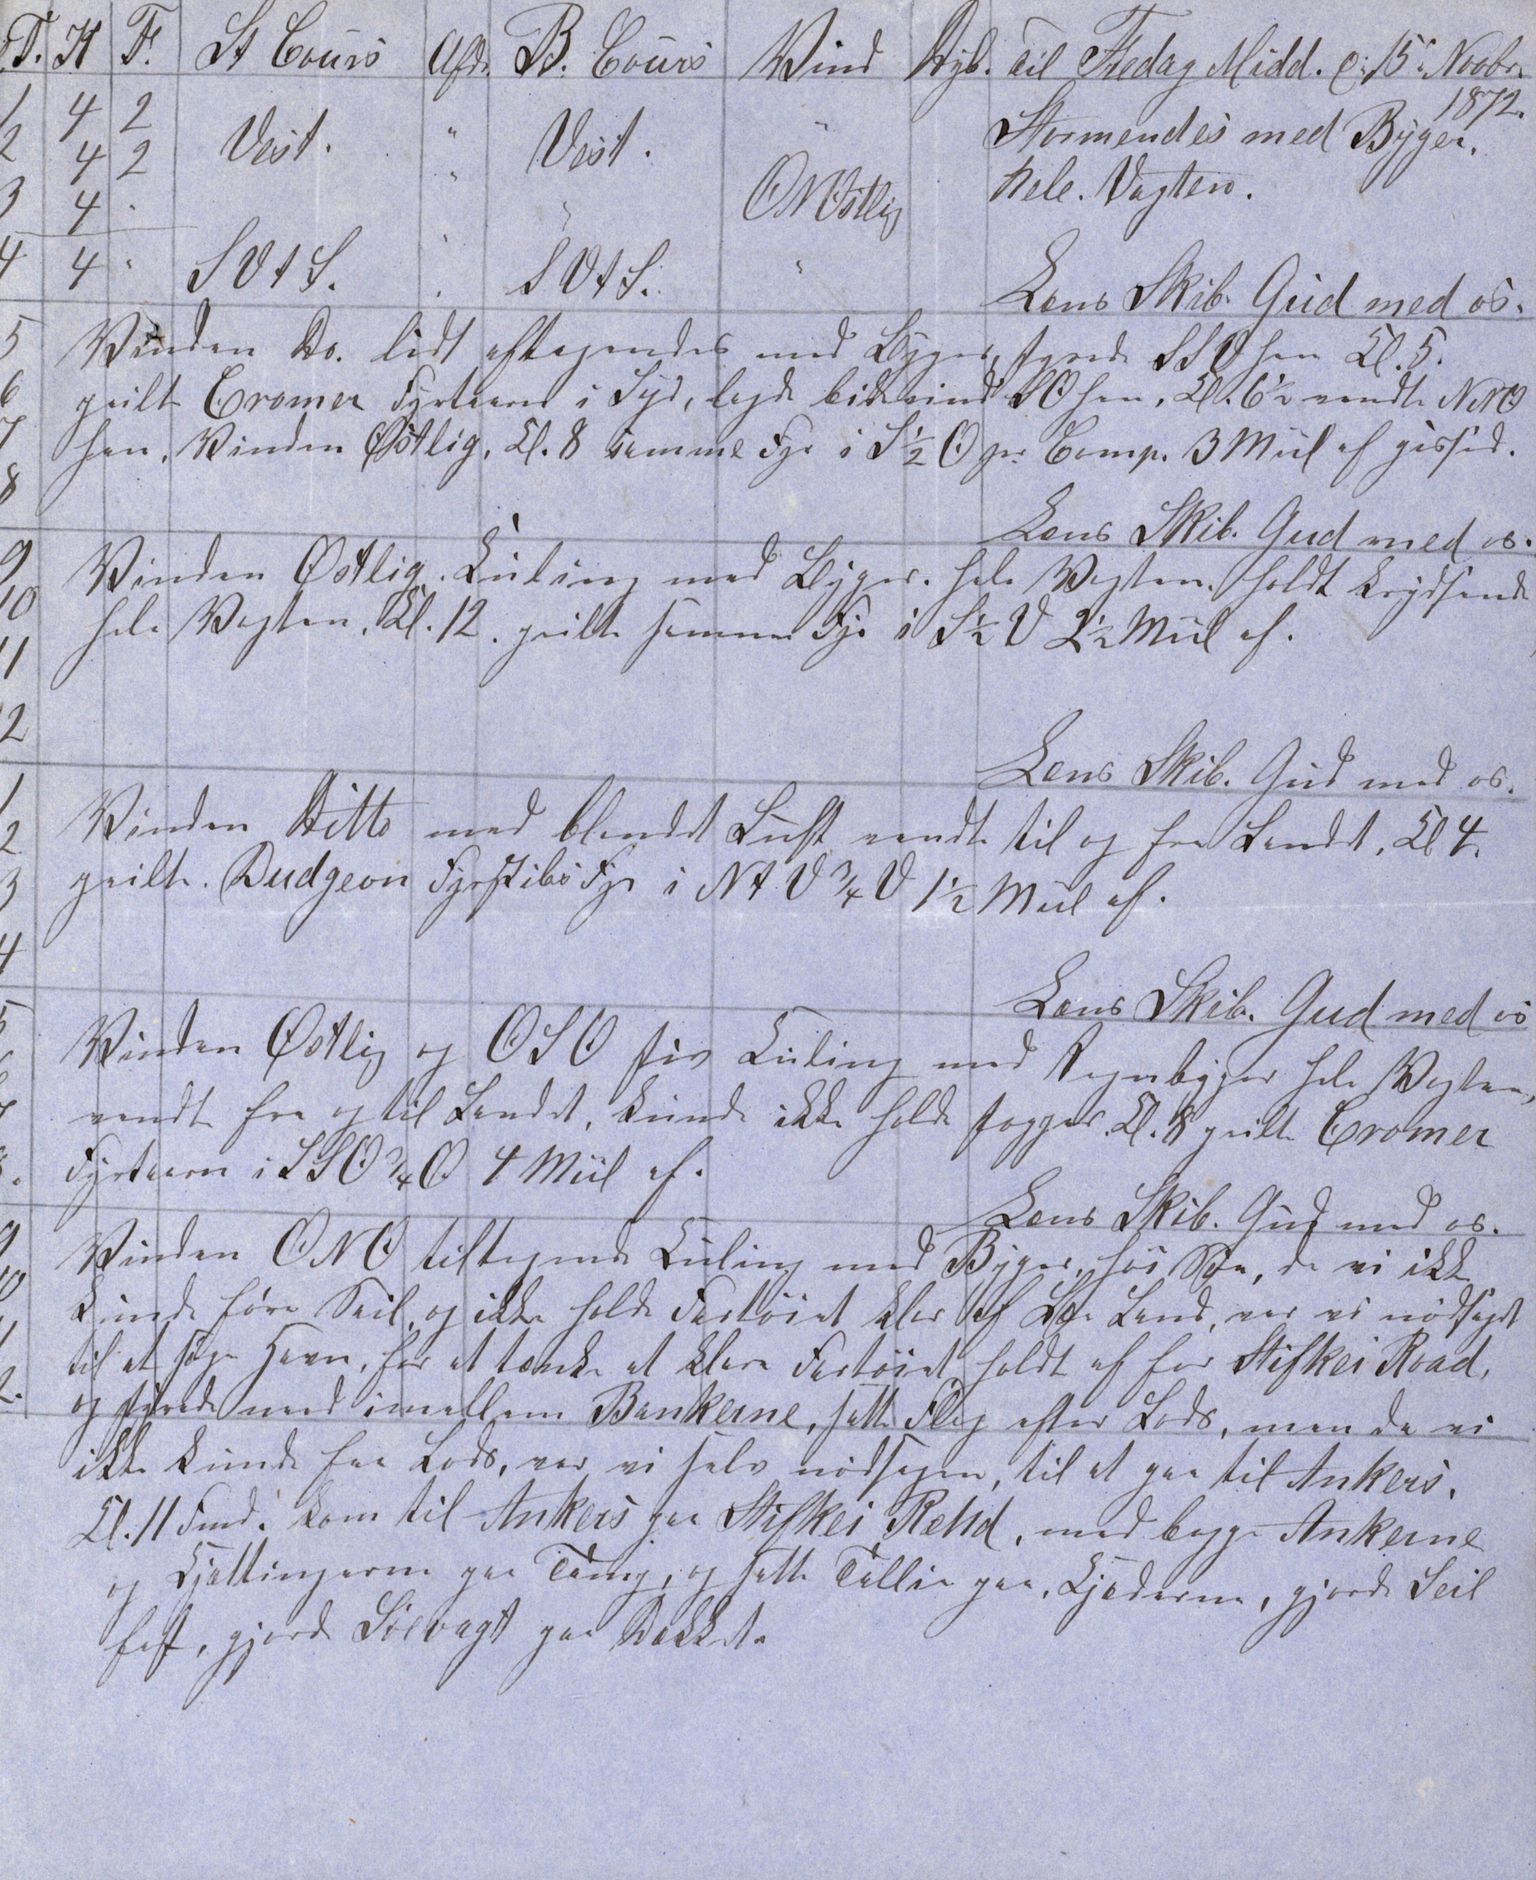 T. K F. St Cours Afdr. B. Cours Wind Dyb. Til Fredag Midd. d: 15de Novbr.
1872.
1 4 2 Vest. " Vest. " Stormendes med Byger.
2 4 2 " hele Vagten.
3 4 " " ONOstlig
4 4 " SVtS. " SVtS. "
Lens Skib. Gud med os.
5 Vinden Do. lidt aftagendes med Byger, styrede SSV hen Kl. 5.
6 peilt Cromer Fyrtaarn i Syd, lagde bidevind SO hen, Kl. 6½ vendte NNO
7 hen, Vinden Østlig, Kl. 8 samme Fyr i S½O pr Comp. 3 Miil af gisset.
8
Lens Skib. Gud med os.
9 Vinden Østlig. Kuling med Byger. hele Vagten. holdt krydsende
10 hele Vagten, Kl. 12. peilte samme Fyr i S½V 2½ Miil af.
11
12
Lens Skib. Gud med os.
1 Vinden Ditto med blendet Luft vendte til og fra Landet, Kl 4.
2 peilte. Dudgeon Fyrskibs Fyr i NtV¾V 1½ Miil af.
3
4
Lens Skib. Gud med os
5 Vinden Østlig og OSO stiv Kuling med Regnbyger hele Vagten,
6 vendte fra og til Landet, kunde ikke holde Pogger. Kl. 8 peilte Cromer
7 Fyrtaarn i SSO¾O. 4 Miil af.
8.
Lens Skib. Gud med os.
9 Vinden ONO tiltagende Kuling med Byger, høi Søe, da vi ikke
10 kunde føre Seil, og ikke holde Fartøiet klar af Læe Land, var vi nødsaget
11 til at søge Havn, for at tænke at klare Fartøiet, holdt af for Stifkei Road,
12. og styrede ned imellem Bankerne, satte Flag efter Lods, men da vi
ikke kunde faa Lods, var vi selv nødsagen, til at gaa til Ankers,
Kl. 11 Fmd: kom til Ankers paa Stifkei Rehd, med begge Ankerne
og Kjættingerne paa Tamp, og satte Tallie paa, Kjæderne, gjorde Seil
fast, gjorde Søevagt paa Dækket.